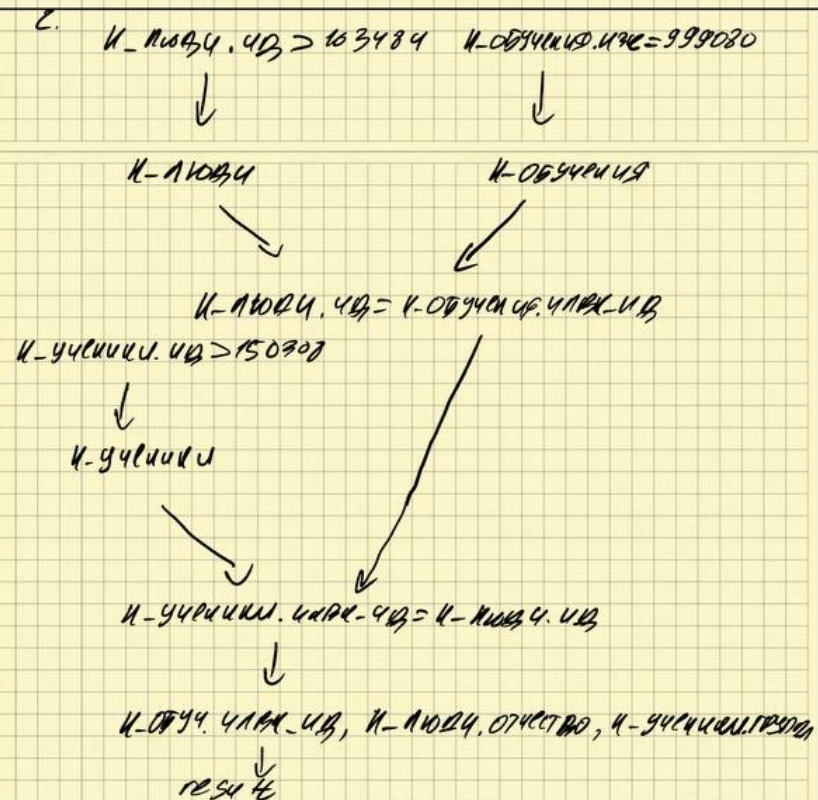 2.
Н_люди.ИД > 163484 Н_обучения.НЗК=999080
Н_люди Н_обучения
Н_люди.ИД = Н_обучения.ЧЛВК_ИД
Н_ученики.ИД > 150308
Н_ученики
Н_ученики.ЧЛВК_ИД = Н_люди.ИД
Н_обуч.ЧЛВК_ИД, Н_люди.отчество, Н_ученики.группа
result